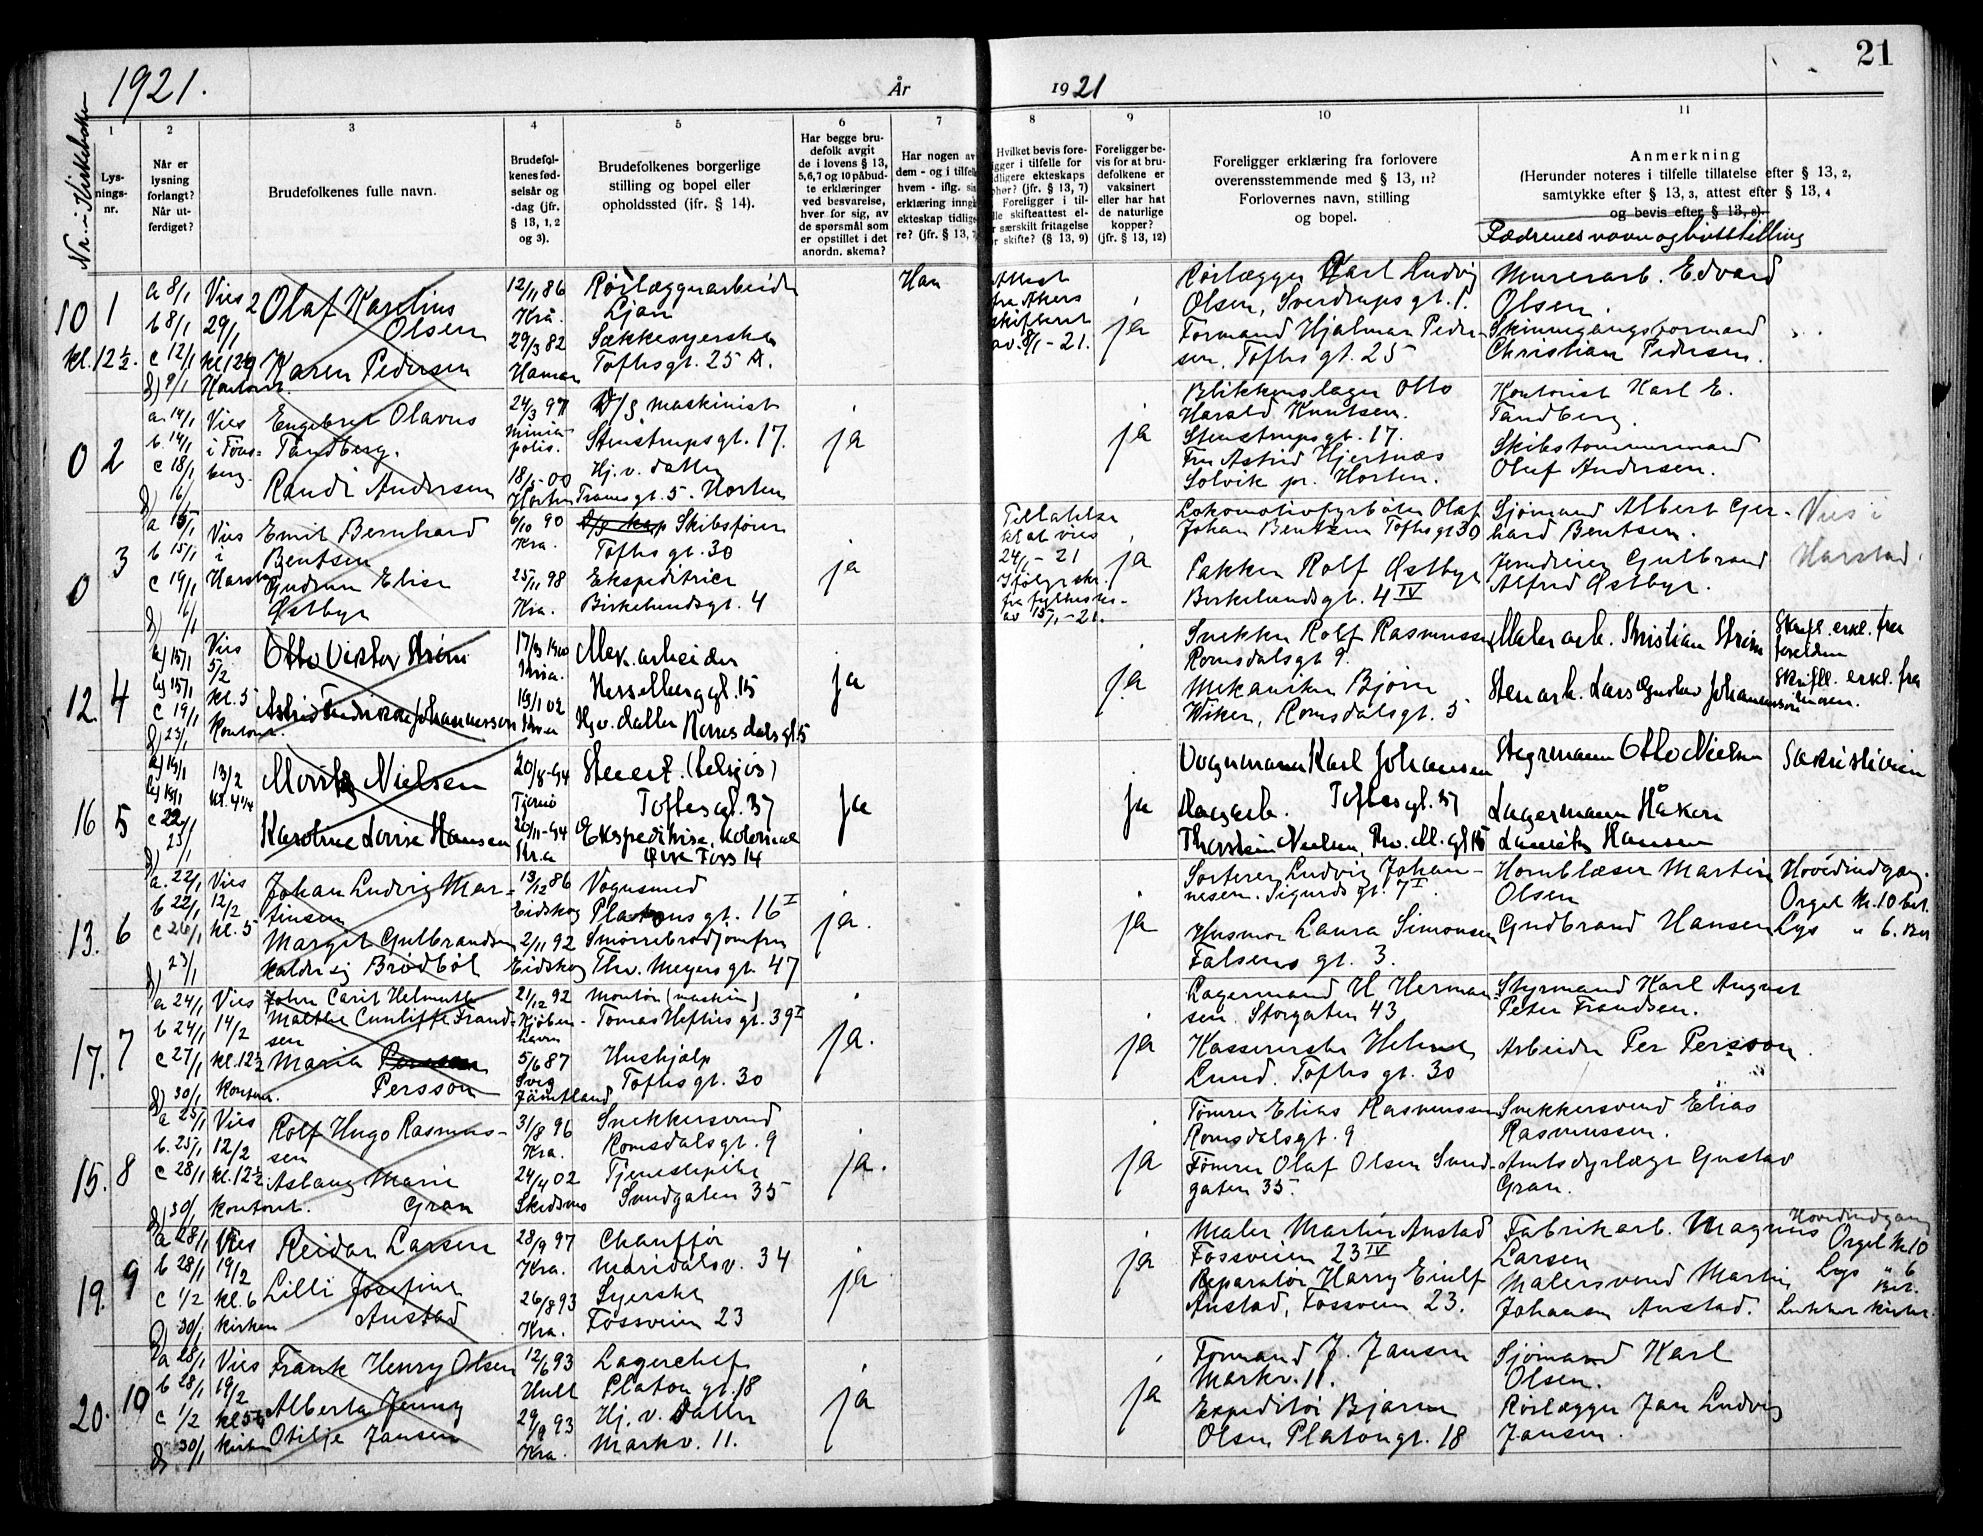 21
1921.
År
1921
Nr. i Kirkeboken
1
Lys-
nings-
nr.
2
Når er
lysning
forlangt?
Når ut-
ferdiget?
3
Brudefolkenes fulle navn.
4
Brudefol-
kenes fød-
selsår og
-dag (jfr.
§ 13, 1, 2
og 3).
5
Brudefolkenes borgerlige
stilling og bopel eller
opholdssted (jfr. § 14).
6
Har begge bru-
defolk avgit
de i lovens § 13,
5,6,7 og 10 påbud-
te erklæringer
ved besvarelse,
hver for sig, av
de spørsmål som
er opstillet i det
anordn. skema?
7
Har nogen av
dem - og i tilfelle
hvem - iflg. si
erklæring inngå
ekteskap tidlige-
re? (jfr. § 13, 7
8
Hvilket bevis fore-
ligger i tilfelle for
tidligere ekteskaps
ophør? (jfr. § 13, 7)
Foreligger i til-
lle skifteattest el-
r særskilt fritagelse
r skifte? (§ 13, 9)
9
Foreligger be-
vis for at bru-
defolkene er
vaksinert
eller har hat
de naturlige
kopper?
(jfr. § 13, 12)
10
Foreligger erklæring fra forlovere
overensstemmende med § 13, 11?
Forlovernes navn, stilling
og bopel.
11
Anmerkning
(Herunder noteres i tilfelle tillatelse efter § 13, 2,
samtykke efter § 13, 3, attest efter § 13, 4
og bevis efter § 13, 8).
Fædrenes navn og livsstilling
10 1
kl. 12½.
a 8/1 Vies
b 8/1 29/1
c 12/1 kl 12½
d) 9/1 Kontoret
Olaf Karelius
Olsen
Karen Pedersen
12/11 86
Kra.
29/3 82
Hamar
Rørlæggerarbeider
Ljan
Sækkesyerske
Toftesgt. 25 A.
Han
Attest
fra Akers
skifteret
av 8/1-21.
ja
Rørlægger Karl Ludvig
Olsen, Sverdrupsgt. 1.
Formand Hjalmar Peder-
sen, Toftesgt. 25
Murerarb. Edvard
Olsen.
Skinnegangsformand
Christian Pedersen.
0 2
a. 14/1 Vies
b. 14/1 i Töns-
c 18/1 berg.
d) 16/1
Engebret Olavus
Tandberg.
Randi Andersen
24/3 97
Minia-
polis.
18/5-00
Horten
D/S maskinist
Stenstrupsgt. 17.
Hj. v. datter
Tramsgt. 5. Horten
ja
ja
Blikkenslager Otto
Harald Knutsen.
Stenstrupsgt. 17.
Fru Astrid Hjertnæs
Solvik pr. Horten.
Kontorist Karl E.
Tandberg.
Skibstømmermand
Oluf Andersen.
0 3
a 15/1 Vies
b 15/1 i
c 19/1 Harstad
d) 16/1
Emil Bernhard
Bentsen
Gudrun Elise
Østbye
6/10 90
Kra.
25/11 98
Kra.
Skibsfører
Toftesgt. 30
Ekspeditrice
Birkelundsgt. 4
ja
Tillatelse
til at vies
24/1-21
Ifølge skr.
fra fylkesm.
av 15/1-21.
ja
Lokomotivfyrbøter Olaf
Johan Bentzen Toftesgt 30
Pakker Rolf Østbye
Birkelundsgt. 4 IV
Sjømand Albert Ger-
hard Bentsen.
Jerndreier Gulbrand
Alfred Østbye.
Vies i
Harstad.
12. 4
a) 15/1 Vies
b) 15/1 5/2
c 19/1 kl. 5
d) 23/1 Kontoret.
Otto Viktor Strøm
Astrid Fredrikke Johannesson
17/3 1900
Kria.
19/1 02
Kria
Mek. arbeider
Hesselberggt. 15
Hj.v. datter Romsdalsgt 5
ja
ja
Snekker Rolf Rasmussen
Romsdalsgt 9.
Mekaniker Bjørn
Wiken, Romsdalsgt. 5
Malerarb. Kristian Strøm
Stenarb. Lars Gustav Johannesson
Skriftl. erkl. fra
foreldren
Skriftl. erkl. fra
moren.
16 5
a) 19/1 13/2
b) 19/1 kl. 4¼
c 22/1
d) 23/1
Moritz Nielsen
Karoline Lovise Hansen
20/8-94
Tjømø
20/11-94
Kr.a
Stuert. (tilsjøs)
Toftesgt. 37
Ekspeditrise, kolonial
Øvre Foss 14
ja
ja
Vognmann Karl Johansen
Toftesgt. 37
Thorstein Nielsen, Thv. M. gt 15
Styrmann Otto Nielsen
Lagermann Håkon
Lauritz Hansen
Sakristi­eien
13. 6
a. 22/1 Vies
b 22/1 12/2
c 26/1 kl. 5
d) 23/1
Johan Ludvig Mar-
tinsen
Margit Gulbrandsen
kalder sig Brødbøl
13/12 86
Eidskog
2/11 92
Eidskog
Vognsmed
Platousgt. 16 I
Smørrebrødjomfru
Thv. Meyersgt. 47
ja.
ja
Sorterer Ludvig Johan-
nesen. Sigurdsgt. 7 I
Husmor Laura Simonsen
Falsens gt. 3.
Hornblæser Martin
Olsen
Gudbrand Hansen
Hovedindgang.
Orgel Kr. 10 bet.
Lys " 6. bet
17. 7
a 24/1 Vies
b 24/1 14/2
c 27/1 kl. 12½
d) 30/1 Kontoret.
John Carit Helmuth
Malthe Cunliffe Frand-
sen
Maria
Persson
21/12 92
Kjøben-
havn
5/6 87
Sveg
Jämtland
Montør (maskin)
Tomas Heftiesgt. 39 I
Hushjælp
Toftesgt. 30
ja.
ja
Lagermand H Herman-
sen. Storgaten 43
Kassererske Helene
Lund. Toftesgt. 30
Styrmand Karl August
Peter Frandsen.
Arbeider Per Persson.
15. 8
a 25/1 Vies
b. 25/1 12/2
c 28/1 kl. 12½
d) 30/1 kontoret.
Rolf Hugo Rasmus-
sen
Aslaug Marie
Gran
31/8 96
Kra.
24/4 02
Skedsmo
Snekkersvend
Romsdalsgt. 9
Tjenestepike
Sundgaten 35
ja.
ja
Tømrer Elias Rasmussen
Romsdalsgt. 9
Tømrer Olaf Olsen Sund-
gaten 35.
Snekkersvend Elias
Rasmussen.
Amtsdyrlæge Gustav
Gran.
19. 9
a 28/1 Vies
b 28/1 19/2
c 1/2 kl. 6
d) 30/1 kirken
Reidar Larsen
Lilli Josefine
Anstad
28/9 97
Kra.
26/8 93
Kra.
Chauffør
Maridalsv. 34
Syerske
Fossveien 23
ja
ja
Maler Martin Anstad
Fossveien 23 IV
Reparatør Harry Einlf
Anstad, Fossveien 23.
Fabrikarb. Magnus
Larsen
Malersvend Martin
Johansen Anstad.
Hovedindgang
Orgel Kr. 10
Lys " 6
Bet.
Lukket kirke.
20. 10
a 28/1 Vies
b 28/1 19/2
c 1/2 kl 5½
d) 30/1 kirken
Frank Henry Olsen
Alberta Jenny
Otilje Jansen
12/6 93
Hull
29/9 93
Kra.
Lagerchef
Platougt. 18
Hj. v. datter
Markv. 11.
ja
ja
Formand J. Jansen
Markv. 11.
Expeditør Bjarne
Olsen Platougt. 18
Sjømand Karl
Olsen.
Rørlægger Jan Ludvig
Jansen.